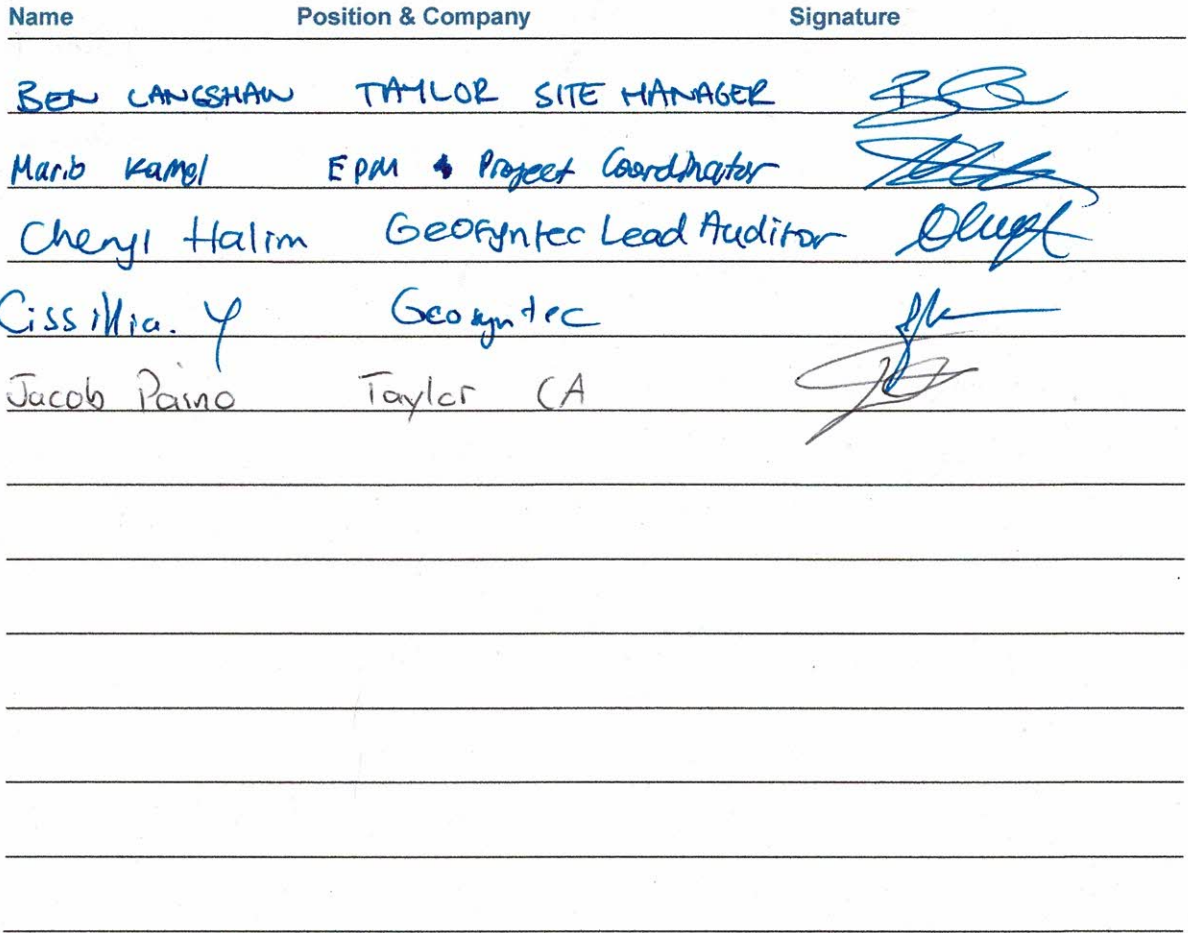 Name Position & Company Signature
BEN LANGSHAW TAYLOR SITE MANAGER
Mario Kamel EPM Project Coordinator
Cheryl Halim Geosyntec Lead Auditor
Cissillia. Y Geosyntec
Jacob Paino Taylor CA